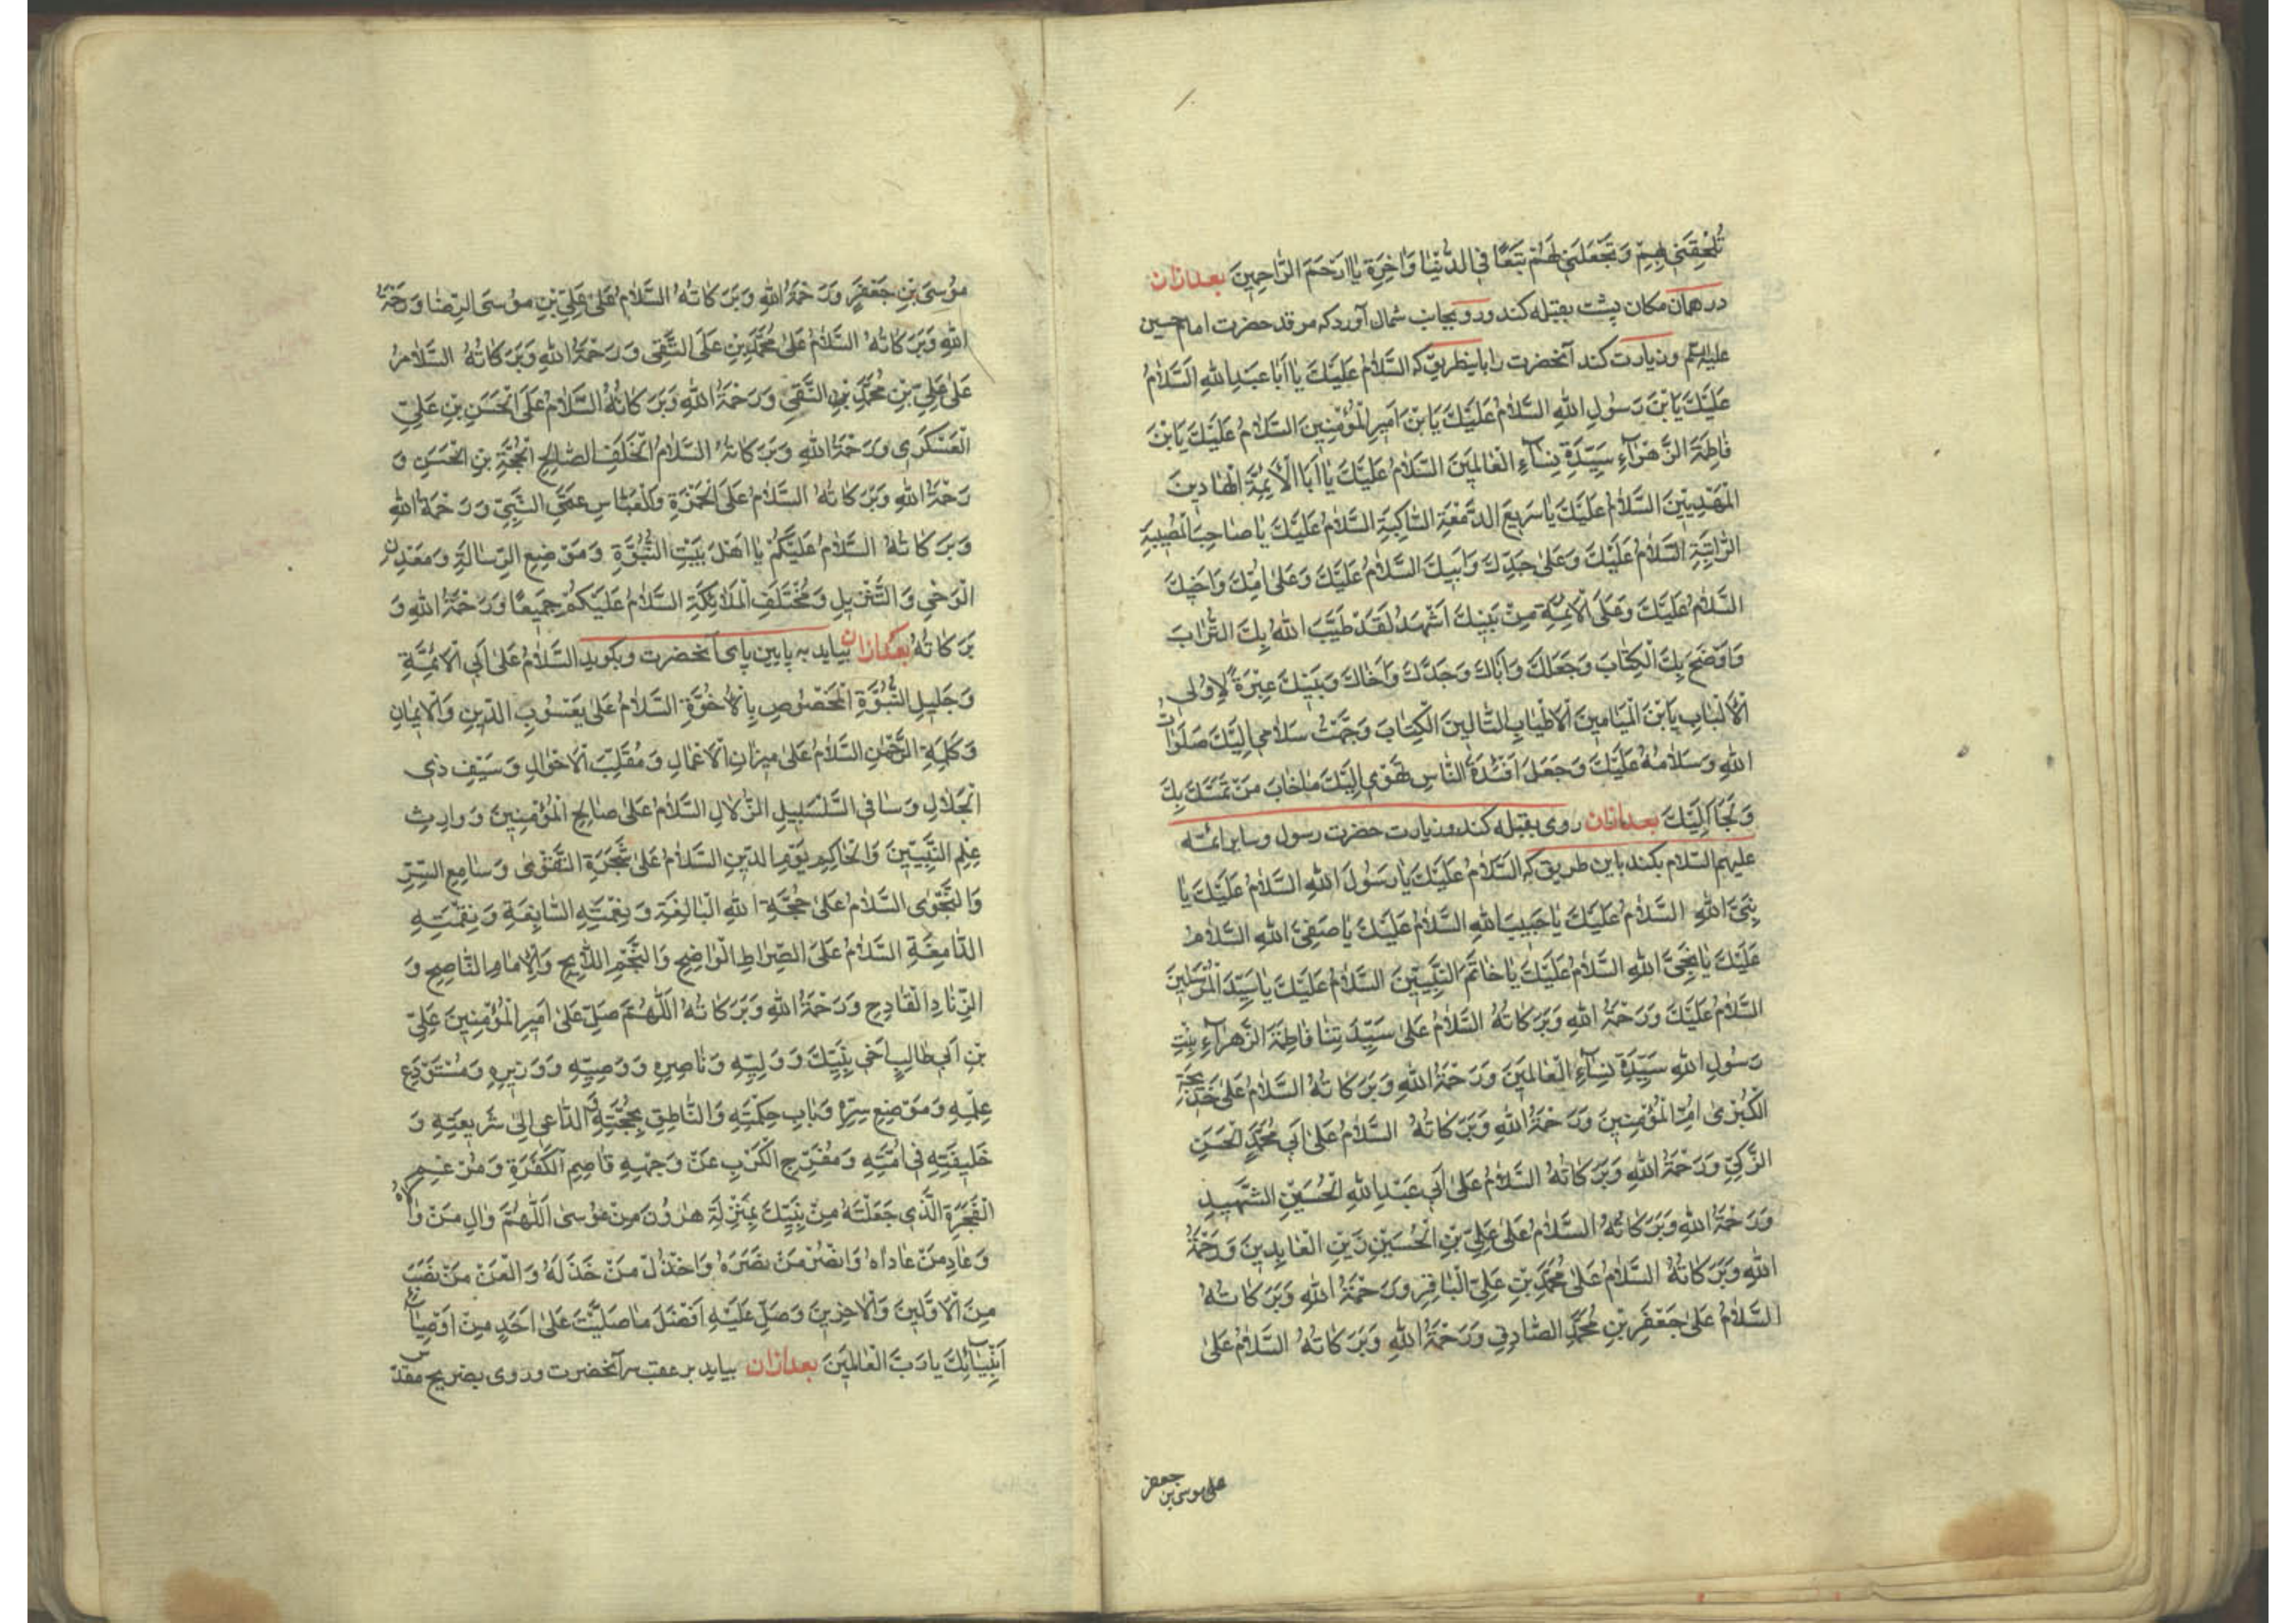 تُلْحِقَنی بِهِمْ وَتَجْعَلَنی لَهُمْ تَبَعًا فِی الدُّنْیٰا وَاٰخِرَةِ یٰا اَرْحَمَ الرّٰاحِمِینَ بعدازان
در همان مکان پشت بقبله کند ورو بجانب شمال آورد که مرقد حضرت امام حسین
علیه السلم وزیارت کند آنحضرت را باینطریق که السَّلٰامُ عَلَیْكَ یٰا اَبٰا عَبْدِ اللهِ السَّلٰامُ
عَلَیْكَ یَابْنَ رَسُولِ اللهِ السَّلٰامُ عَلَیْكَ یَابْنَ اَمِیرِ الْمُؤْمِنِینَ السَّلٰامُ عَلَیْكَ یَابْنَ
فٰاطِمَةَ الزَّهْرٰاءِ سَیِّدَةِ نِسٰاءِ الْعٰالَمِینَ السَّلٰامُ عَلَیْكَ یٰا اَبَا الْاَئِمَّةِ الْهٰادِینَ
الْمَهْدِیِّینَ السَّلٰامُ عَلَیْكَ یٰا سَرِیعَ الدَّمْعَةِ السّٰاكِبَةِ السَّلٰامُ عَلَیْكَ یٰا صٰاحِبَ الْمُصِیبَةِ
الرّٰاتِبَةِ السَّلٰامُ عَلَیْكَ وَعَلیٰ جَدِّكَ وَاَبِیكَ السَّلٰامُ عَلَیْكَ وَعَلیٰ اُمِّكَ وَاَخِیكَ
السَّلٰامُ عَلَیْكَ وَعَلَی الْاَئِمَّةِ مِنْ بَنِیكَ اَشْهَدُ لَقَدْ طَیَّبَ اللهُ بِكَ التُّرٰابَ
وَاَوْضَحَ بِكَ الْكِتٰابَ وَجَعَلَكَ وَاَبٰاكَ وَجَدَّكَ وَاَخٰاكَ وَبَنِیكَ عِبْرَةً لِاُولِی
الْاَلْبٰابِ یَابْنَ الْمَیٰامِینَ الْاَطْیٰابِ التّٰالِینَ الْكِتٰابَ وَجَّهْتُ سَلٰامِی اِلَیْكَ صَلَوٰاتُ
اللهِ وَسَلٰامُهُ عَلَیْكَ وَجَعَلَ اَفْئِدَةَ النّٰاسِ تَهْوِی اِلَیْكَ مٰا خٰابَ مَنْ تَمَسَّكَ بِكَ
وَلَجَاَ اِلَیْكَ بعدازان روی بقبله کند وزیارت حضرت رسول وسایر ائمه
علیهم السلام بکند باین طریق که السَّلٰامُ عَلَیْكَ یٰا رَسُولَ اللهِ السَّلٰامُ عَلَیْكَ یٰا
نَبِیَّ اللهِ السَّلٰامُ عَلَیْكَ یٰا حَبِیبَ اللهِ السَّلٰامُ عَلَیْكَ یٰا صَفِیَّ اللهِ السَّلٰامُ
عَلَیْكَ یٰا نَجِیَّ اللهِ السَّلٰامُ عَلَیْكَ یٰا خٰاتَمَ النَّبِیِّینَ السَّلٰامُ عَلَیْكَ یٰا سَیِّدَ الْمُرْسَلِینَ
السَّلٰامُ عَلَیْكَ وَرَحْمَةُ اللهِ وَبَرَكٰاتُهُ السَّلٰامُ عَلیٰ سَیِّدَتِنٰا فٰاطِمَةَ الزَّهْرٰاءِ بِنْتِ
رَسُولِ اللهِ سَیِّدَةِ نِسٰاءِ الْعٰالَمِینَ وَرَحْمَةُ اللهِ وَبَرَكٰاتُهُ السَّلٰامُ عَلیٰ خَدِیجَةِ
الْكُبْریٰ اُمِّ الْمُؤْمِنِینَ وَرَحْمَةُ اللهِ وَبَرَكٰاتُهُ السَّلٰامُ عَلیٰ اَبِی مُحَمَّدٍ الْحَسَنِ
الزَّكِیِّ وَرَحْمَةُ اللهِ وَبَرَكٰاتُهُ السَّلٰامُ عَلیٰ اَبِی عَبْدِ اللهِ الْحُسَیْنِ الشَّهِیدِ
وَرَحْمَةُ اللهِ وَبَرَكٰاتُهُ السَّلٰامُ عَلیٰ عَلِیِّ بْنِ الْحُسَیْنِ زَیْنِ الْعٰابِدِینَ وَرَحْمَةُ
اللهِ وَبَرَكٰاتُهُ السَّلٰامُ عَلیٰ مُحَمَّدِ بْنِ عَلِیٍّ الْبٰاقِرِ وَرَحْمَةُ اللهِ وَبَرَكٰاتُهُ
السَّلٰامُ عَلیٰ جَعْفَرِ بْنِ مُحَمَّدٍ الصّٰادِقِ وَرَحْمَةُ اللهِ وَبَرَكٰاتُهُ السَّلٰامُ عَلیٰ
علی موسی بن جعفر
مُوسَی بْنِ جَعْفَرٍ وَرَحْمَةُ اللهِ وَبَرَكٰاتُهُ السَّلٰامُ عَلیٰ عَلِیِّ بْنِ مُوسَی الرِّضٰا وَرَحْمَةُ
اللهِ وَبَرَكٰاتُهُ السَّلٰامُ عَلیٰ مُحَمَّدِ بْنِ عَلَی التَّقِی وَرَحْمَةُ اللهِ وَبَرَكٰاتُهُ السَّلٰامُ
عَلیٰ عَلِیِّ بْنِ مُحَمَّدِ بْنِ النَّقِی وَرَحْمَةُ اللهِ وَبَرَكٰاتُهُ السَّلٰامُ عَلَی الْحَسَنِ بْنِ عَلِیٍّ
الْعَسْكَرِی وَرَحْمَةُ اللهِ وَبَرَكٰاتُهُ السَّلٰامُ الْخَلَفِ الصّٰالِحِ الْحُجَّةِ بْنِ الْحَسَنِ وَ
رَحْمَةُ اللهِ وَبَرَكٰاتُهُ السَّلٰامُ عَلَی الْحَمْزَةِ وَالْعَبّٰاسِ عَمَّیِ النَّبِیِّ وَرَحْمَةُ اللهِ
وَبَرَكٰاتُهُ السَّلٰامُ عَلَیْكُمْ یٰا اَهْلَ بَیْتِ النُّبُوَّةِ وَمَوْضِعِ الرِّسٰالَةِ وَمَعْدِنِ
الْوَحْیِ وَالتَّنْزِیلِ وَمُخْتَلَفِ الْمَلٰائِكَةِ السَّلٰامُ عَلَیْكُمْ جَمِیعًا وَرَحْمَةُ اللهِ وَ
بَرَكٰاتُهُ بعدازان بیاید به پایین پای آنحضرت وبگوید السَّلٰامُ عَلیٰ اَبِی الْاَئِمَّةِ
وَخَلِیلِ النُّبُوَّةِ الْمَخْصُوصِ بِالْاُخُوَّةِ السَّلٰامُ عَلیٰ یَعْسُوبِ الدِّینِ وَالْاِیمٰانِ
وَكَلِمَةِ الرَّحْمٰنِ السَّلٰامُ عَلیٰ مِیزٰانِ الْاَعْمٰالِ وَمُقَلِّبَ الْاَحْوٰالِ وَسَیْفِ ذِی
الْجَلٰالِ وَسٰاقِی السَّلْسَبِیلِ الزُّلٰالِ السَّلٰامُ عَلیٰ صٰالِحِ الْمُؤْمِنِینَ وَوٰارِثِ
عِلْمِ النَّبِیِّینَ وَالْحٰاكِمِ یَوْمَ الدِّینِ السَّلٰامُ عَلیٰ شَجَرَةِ التَّقْوٰی وَسٰامِعِ السِّرِّ
وَالنَّجْوٰی السَّلٰامُ عَلیٰ حُجَّةِ اللهِ الْبٰالِغَةِ وَنِعْمَتِهِ السّٰابِغَةِ وَنِقْمَتِهِ
الدّٰامِغَةِ السَّلٰامُ عَلَی الصِّرٰاطِ الْوٰاضِحِ وَالنَّجْمِ اللّٰایِحِ وَالْاِمٰامِ النّٰاصِحِ وَ
الزِّنٰادِ الْقٰادِحِ وَرَحْمَةُ اللهِ وَبَرَكٰاتُهُ اَللّٰهُمَّ صَلِّ عَلیٰ اَمِیرِ الْمُؤْمِنِینَ عَلِیِّ
بْنِ اَبِی طٰالِبٍ اَخِی نَبِیِّكَ وَوَلِیِّهِ وَنٰاصِرِهِ وَوَصِیِّهِ وَوَزِیرِهِ وَمُسْتَوْدَعِ
عِلْمِهِ وَمَوْضِعِ سِرِّهِ وَبٰابِ حِكْمَتِهِ وَالنّٰاطِقِ بِحُجَّتِهِ وَالدّٰاعِی اِلیٰ شَرِیعَتِهِ وَ
خَلِیفَتِهِ فِی اُمَّتِهِ وَمُفَرِّجِ الْكَرْبِ عَنْ وَجْهِهِ قٰاصِمِ الْكَفَرَةِ وَمُرْغِمِ
الْفَجَرَةِ الَّذِی جَعَلْتَهُ مِنْ نَبِیِّكَ بِمَنْزِلَةِ هٰرُونَ مِنْ مُوسیٰ اَللّٰهُمَّ وٰالِ مَنْ وٰالٰاهُ
وَعٰادِ مَنْ عٰادٰاهُ وَانْصُرْ مَنْ نَصَرَهُ وَاخْذُلْ مَنْ خَذَلَهُ وَالْعَنْ مَنْ نَصَبَ
مِنَ الْاَوَّلِینَ وَالْاٰخِرِینَ وَصَلِّ عَلَیْهِ اَفْضَلَ مٰا صَلَّیْتَ عَلیٰ اَحَدٍ مِنْ اَوْصِیٰاءِ
اَنْبِیٰائِكَ یٰا رَبَّ الْعٰالَمِینَ بعدازان بیاید بر عقب سر آنحضرت وروی بضریح مقدس